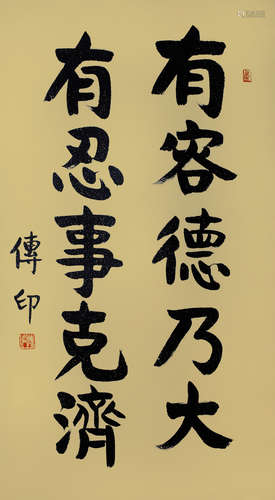 有容德乃大
有忍事克濟
傳印